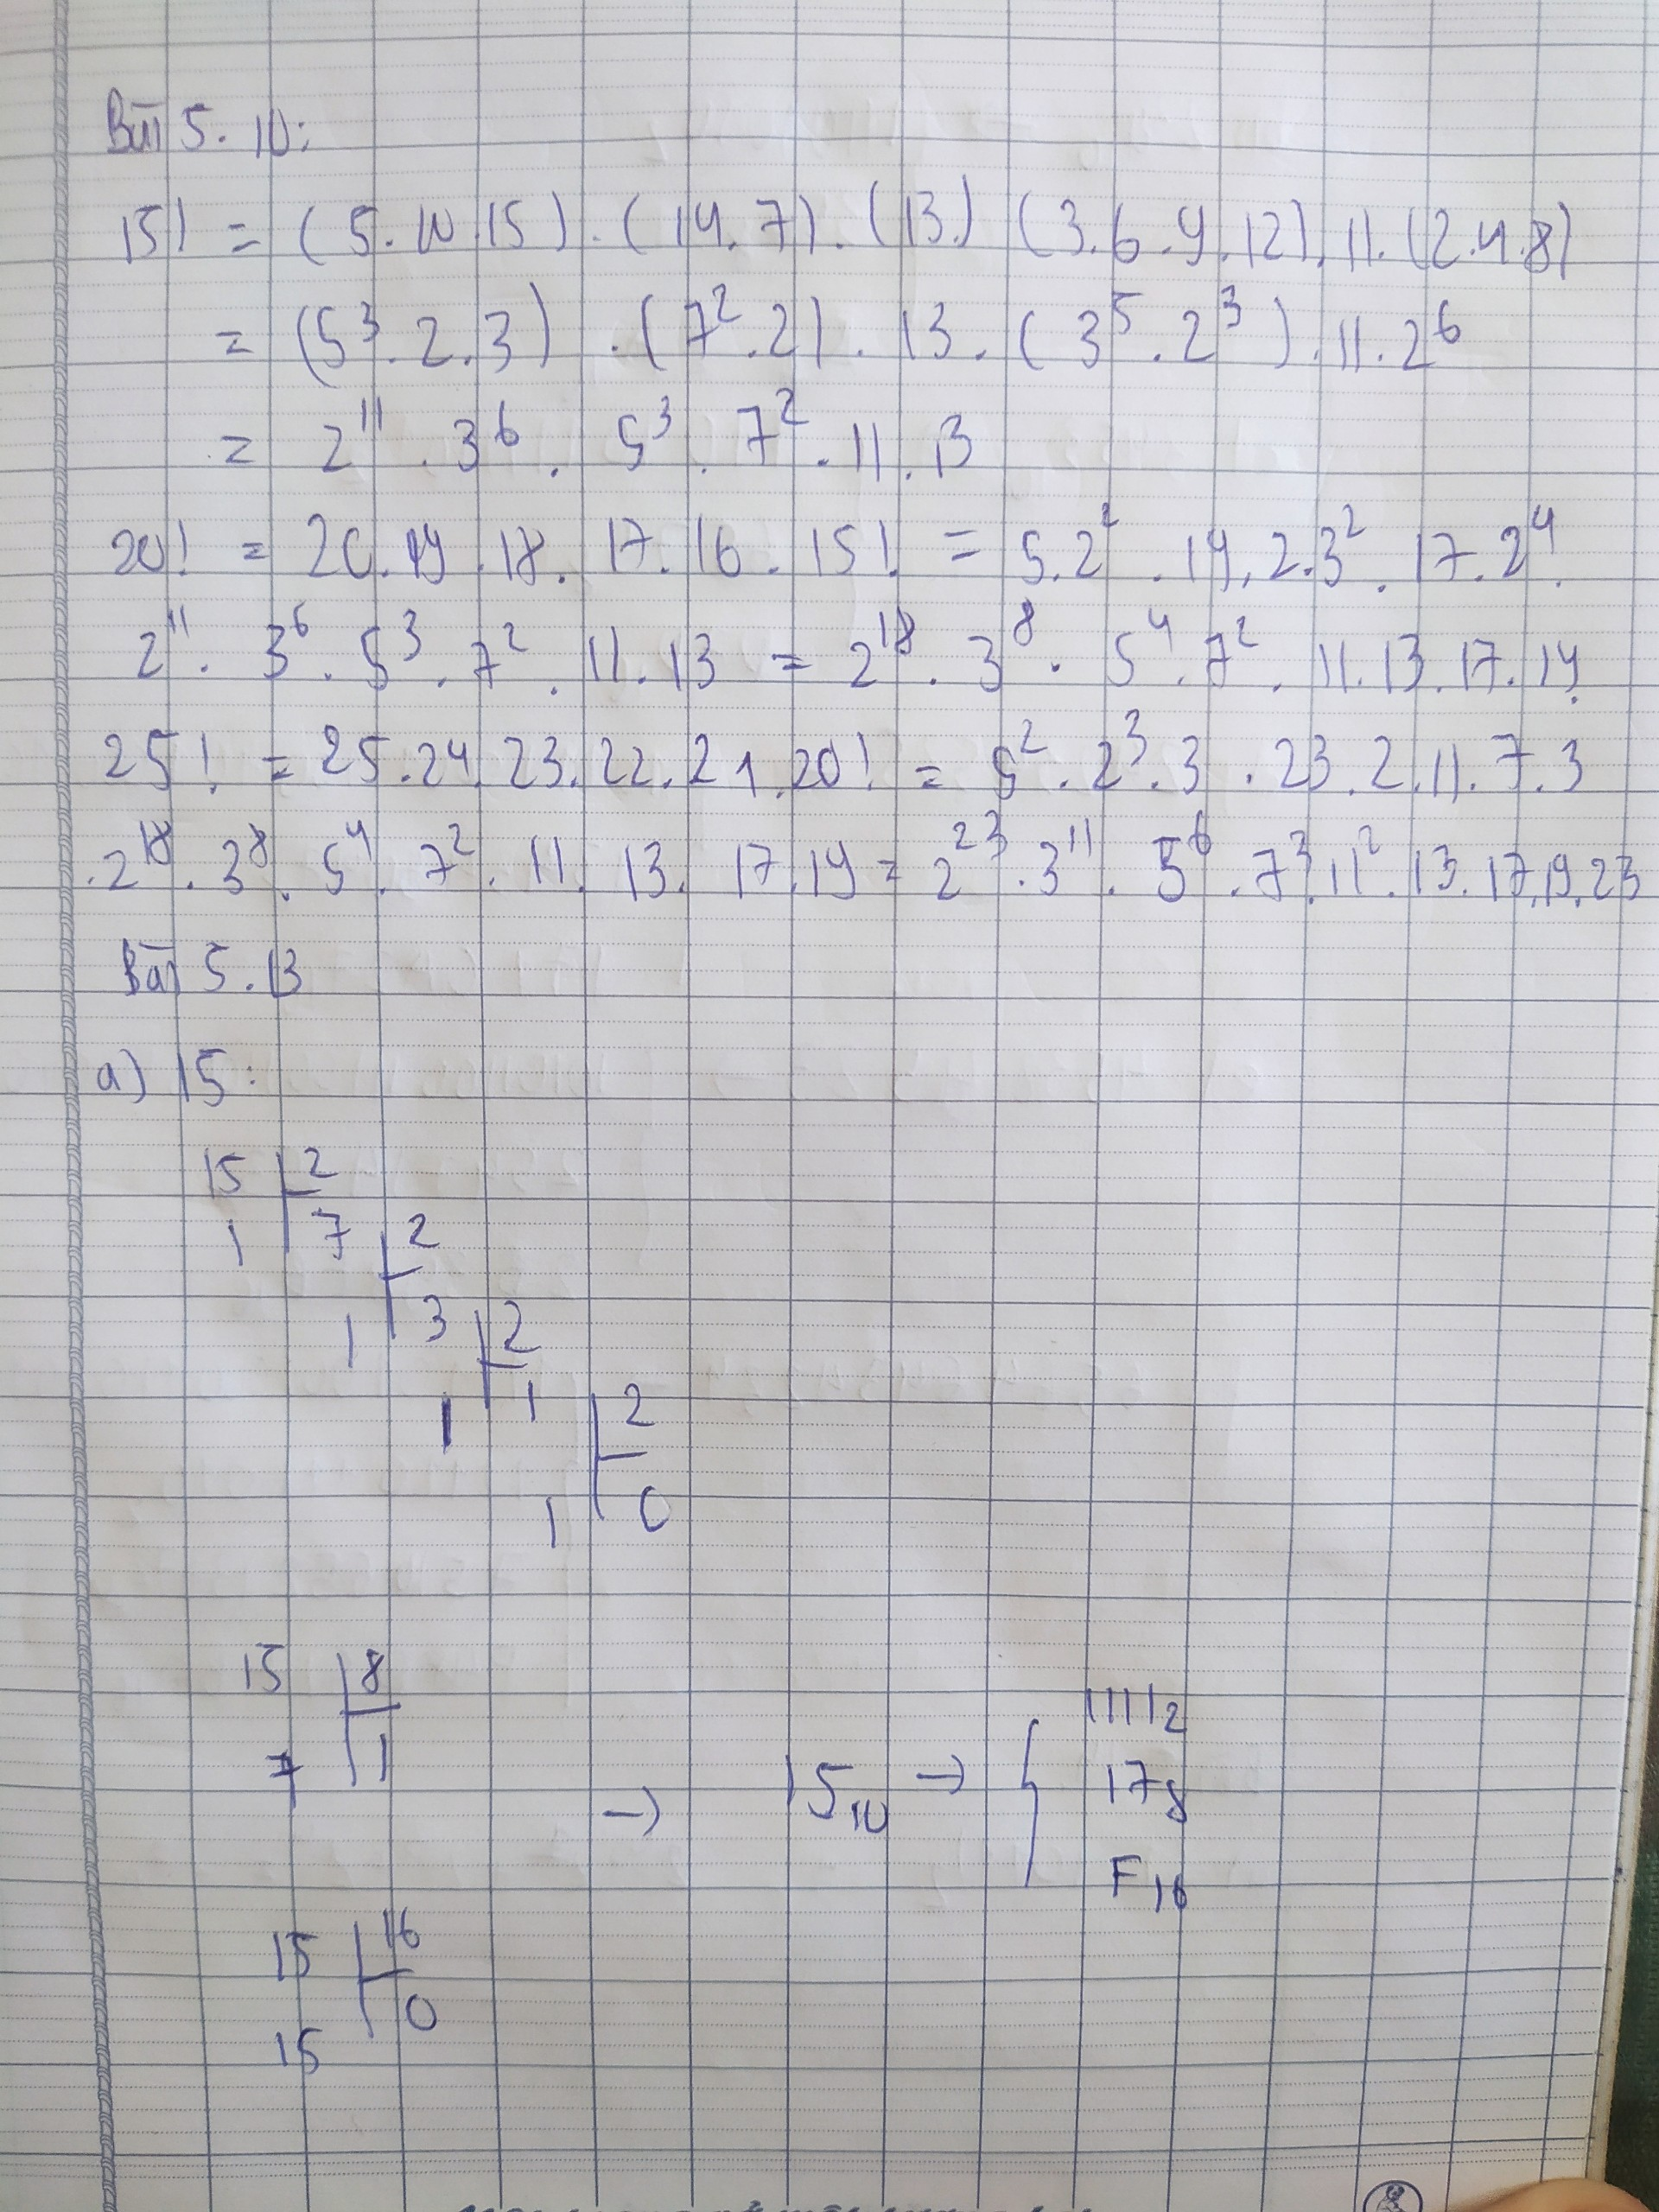 Bài 5.10:
15! = (5.10.15).(14.7).(13.)(3.6.9.12).11.(2.4.8)
= (5³.2.3).(7².2).13.(3⁵.2³).11.2⁶
= 2¹¹.3⁶.5³.7².11.13
20! = 20.19.18.17.16.15! = 5.2².19.2.3².17.2⁴.
2¹¹.3⁶.5³.7².11.13 = 2¹⁸.3⁸.5⁴.7².11.13.17.19.
25! = 25.24.23.22.21.20! = 5².2³.3.23.2.11.7.3
.2¹⁸.3⁸.5⁴.7².11.13.17.19 = 2²³.3¹¹.5⁶.7³.11².13.17.19.23
Bài 5.13
a) 15:
15 2
1 7 2
1 3 2
1 1 2
1 0
15 8
7 1
→ 15₁₀ → { 1111₂
17₈
F₁₆
15 16
15 0